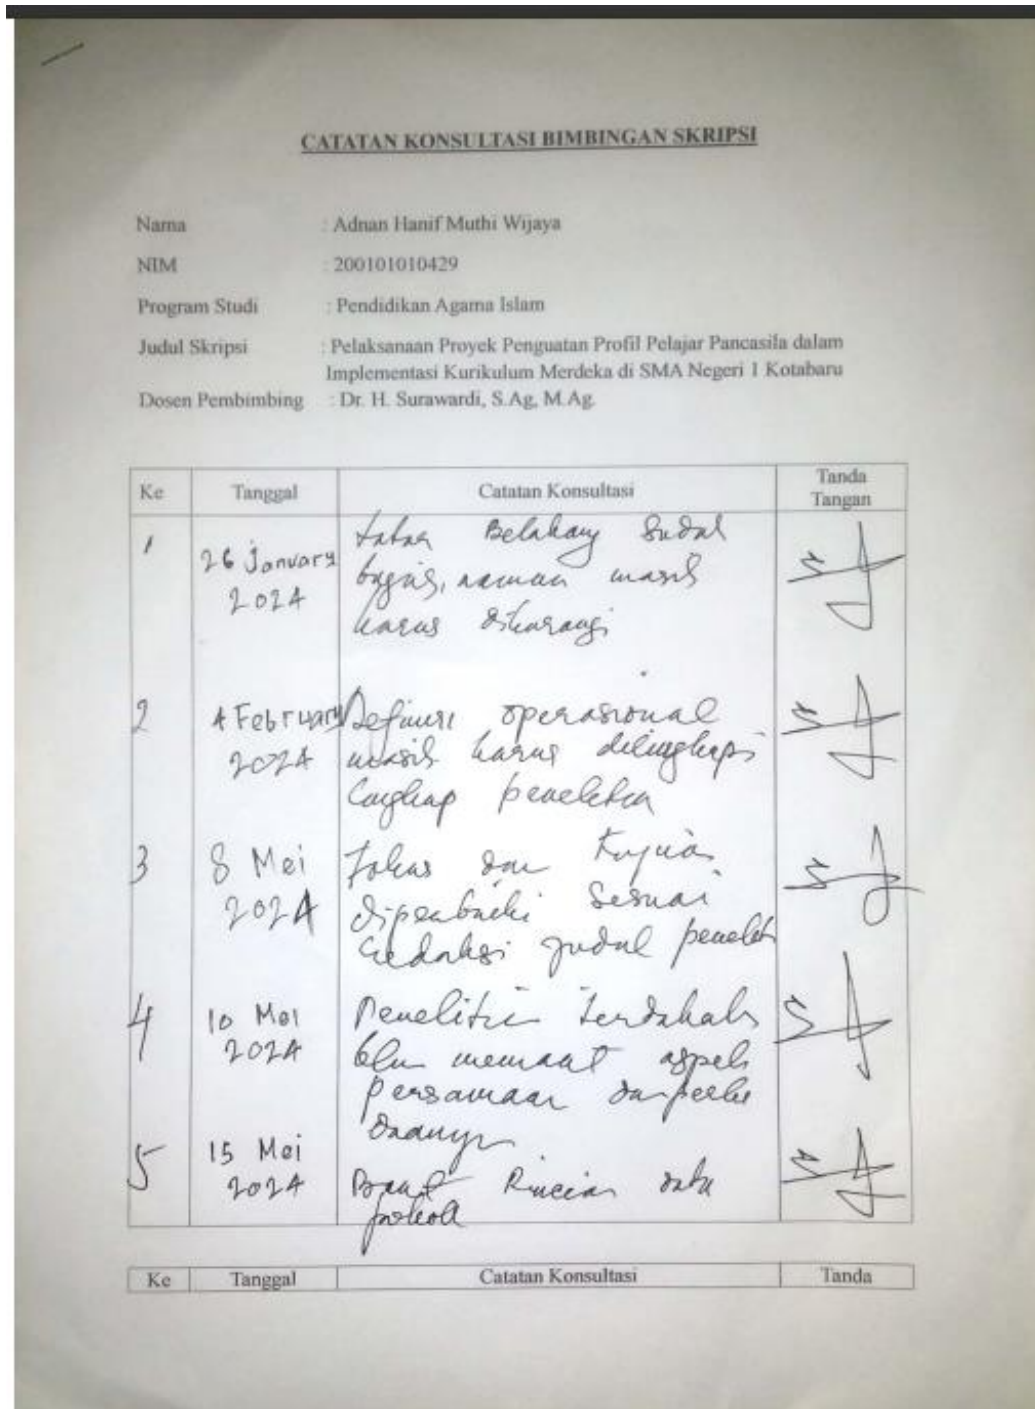 CATATAN KONSULTASI BIMBINGAN SKRIPSI
Nama : Adnan Hanif Muthi Wijaya
NIM : 200101010429
Program Studi : Pendidikan Agama Islam
Judul Skripsi : Pelaksanaan Proyek Penguatan Profil Pelajar Pancasila dalam
Implementasi Kurikulum Merdeka di SMA Negeri 1 Kotabaru
Dosen Pembimbing : Dr. H. Surawardi, S.Ag, M.Ag.
Ke Tanggal Catatan Konsultasi Tanda
Tangan
1 26 January 2024
Latar Belakang sudah
bagus, namun masih
harus dikurangi
2 4 February 2024
Definisi operasional
masih harus dilengkapi
penelitian
3 8 Mei 2024
Fokus dan Tujuan
diperbaiki sesuai
redaksi judul
4 10 Mei 2024
Penelitian terdahulu
memuat aspek
persamaan dan
5 15 Mei 2024
Rincian data
pokok
Ke Tanggal Catatan Konsultasi Tanda